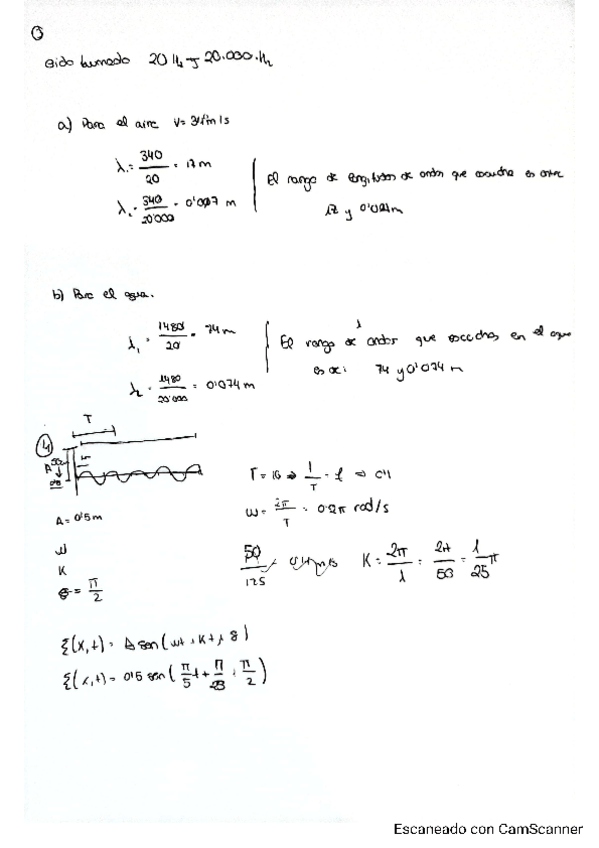 oido humano 20 Hz → 20.000 Hz
a) Para el aire V= 340 m/s
λ₁ = 340/20 = 17 m
λ₂ = 340/20'000 = 0'017 m
El rango de longitudes de ondas que escucha es entre
17 y 0'017 m
b) Para el agua.
λ₁ = 1480/20 = 74 m
λ₂ = 1480/20'000 = 0'074 m
El rango de λ ondas que escuchas en el agua
es de: 74 y 0'074 m
T
4
A
A = 0'5 m
T = 10 ⇒ 1/T = f ⇒ 0'1
ω = 2π/T = 0'2π rad/s
ω
K
δ = π/2
50/125
K = 2π/λ = 2π/50 = 1/25 π
ξ(x,t) = A sen(ωt + Kx + δ)
ξ(x,t) = 0'5 sen(π/5 t + π/25 + π/2)
Escaneado con CamScanner